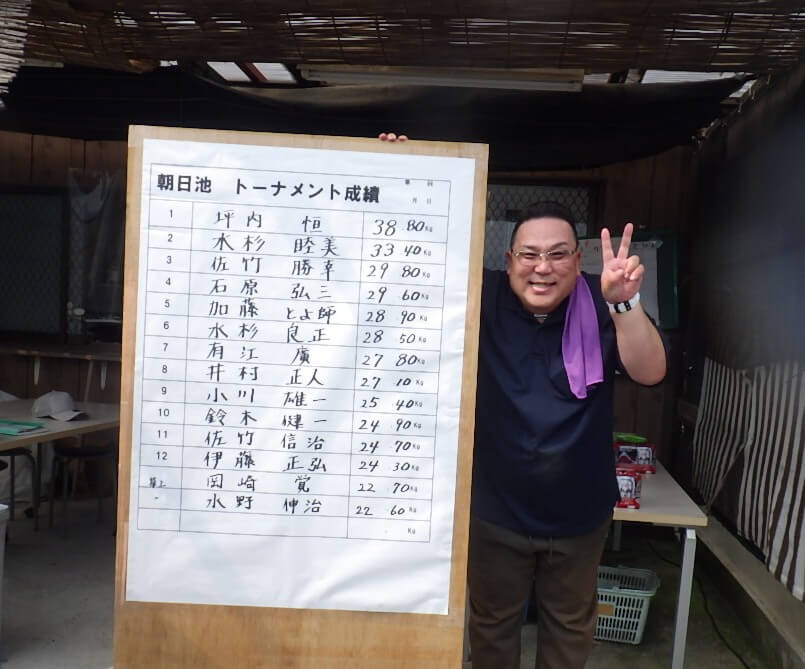 朝日池 トーナメント成績 第 回
月 日
1 坪内 恒 38.80Kg
2 水杉 睦美 33.40Kg
3 佐竹 勝幸 29 80Kg
4 石原 弘三 29 60Kg
5 加藤 とよ師 28 90Kg
6 水杉 良正 28 50Kg
7 有江 廣 27 80Kg
8 井村 正人 27 10Kg
9 小川 雄一 25 40Kg
10 鈴木 健一 24 90Kg
11 佐竹 信治 24 70Kg
12 伊藤 正弘 24 30Kg
岡崎 覚 22 70Kg
水野 伸治 22 60Kg
Kg